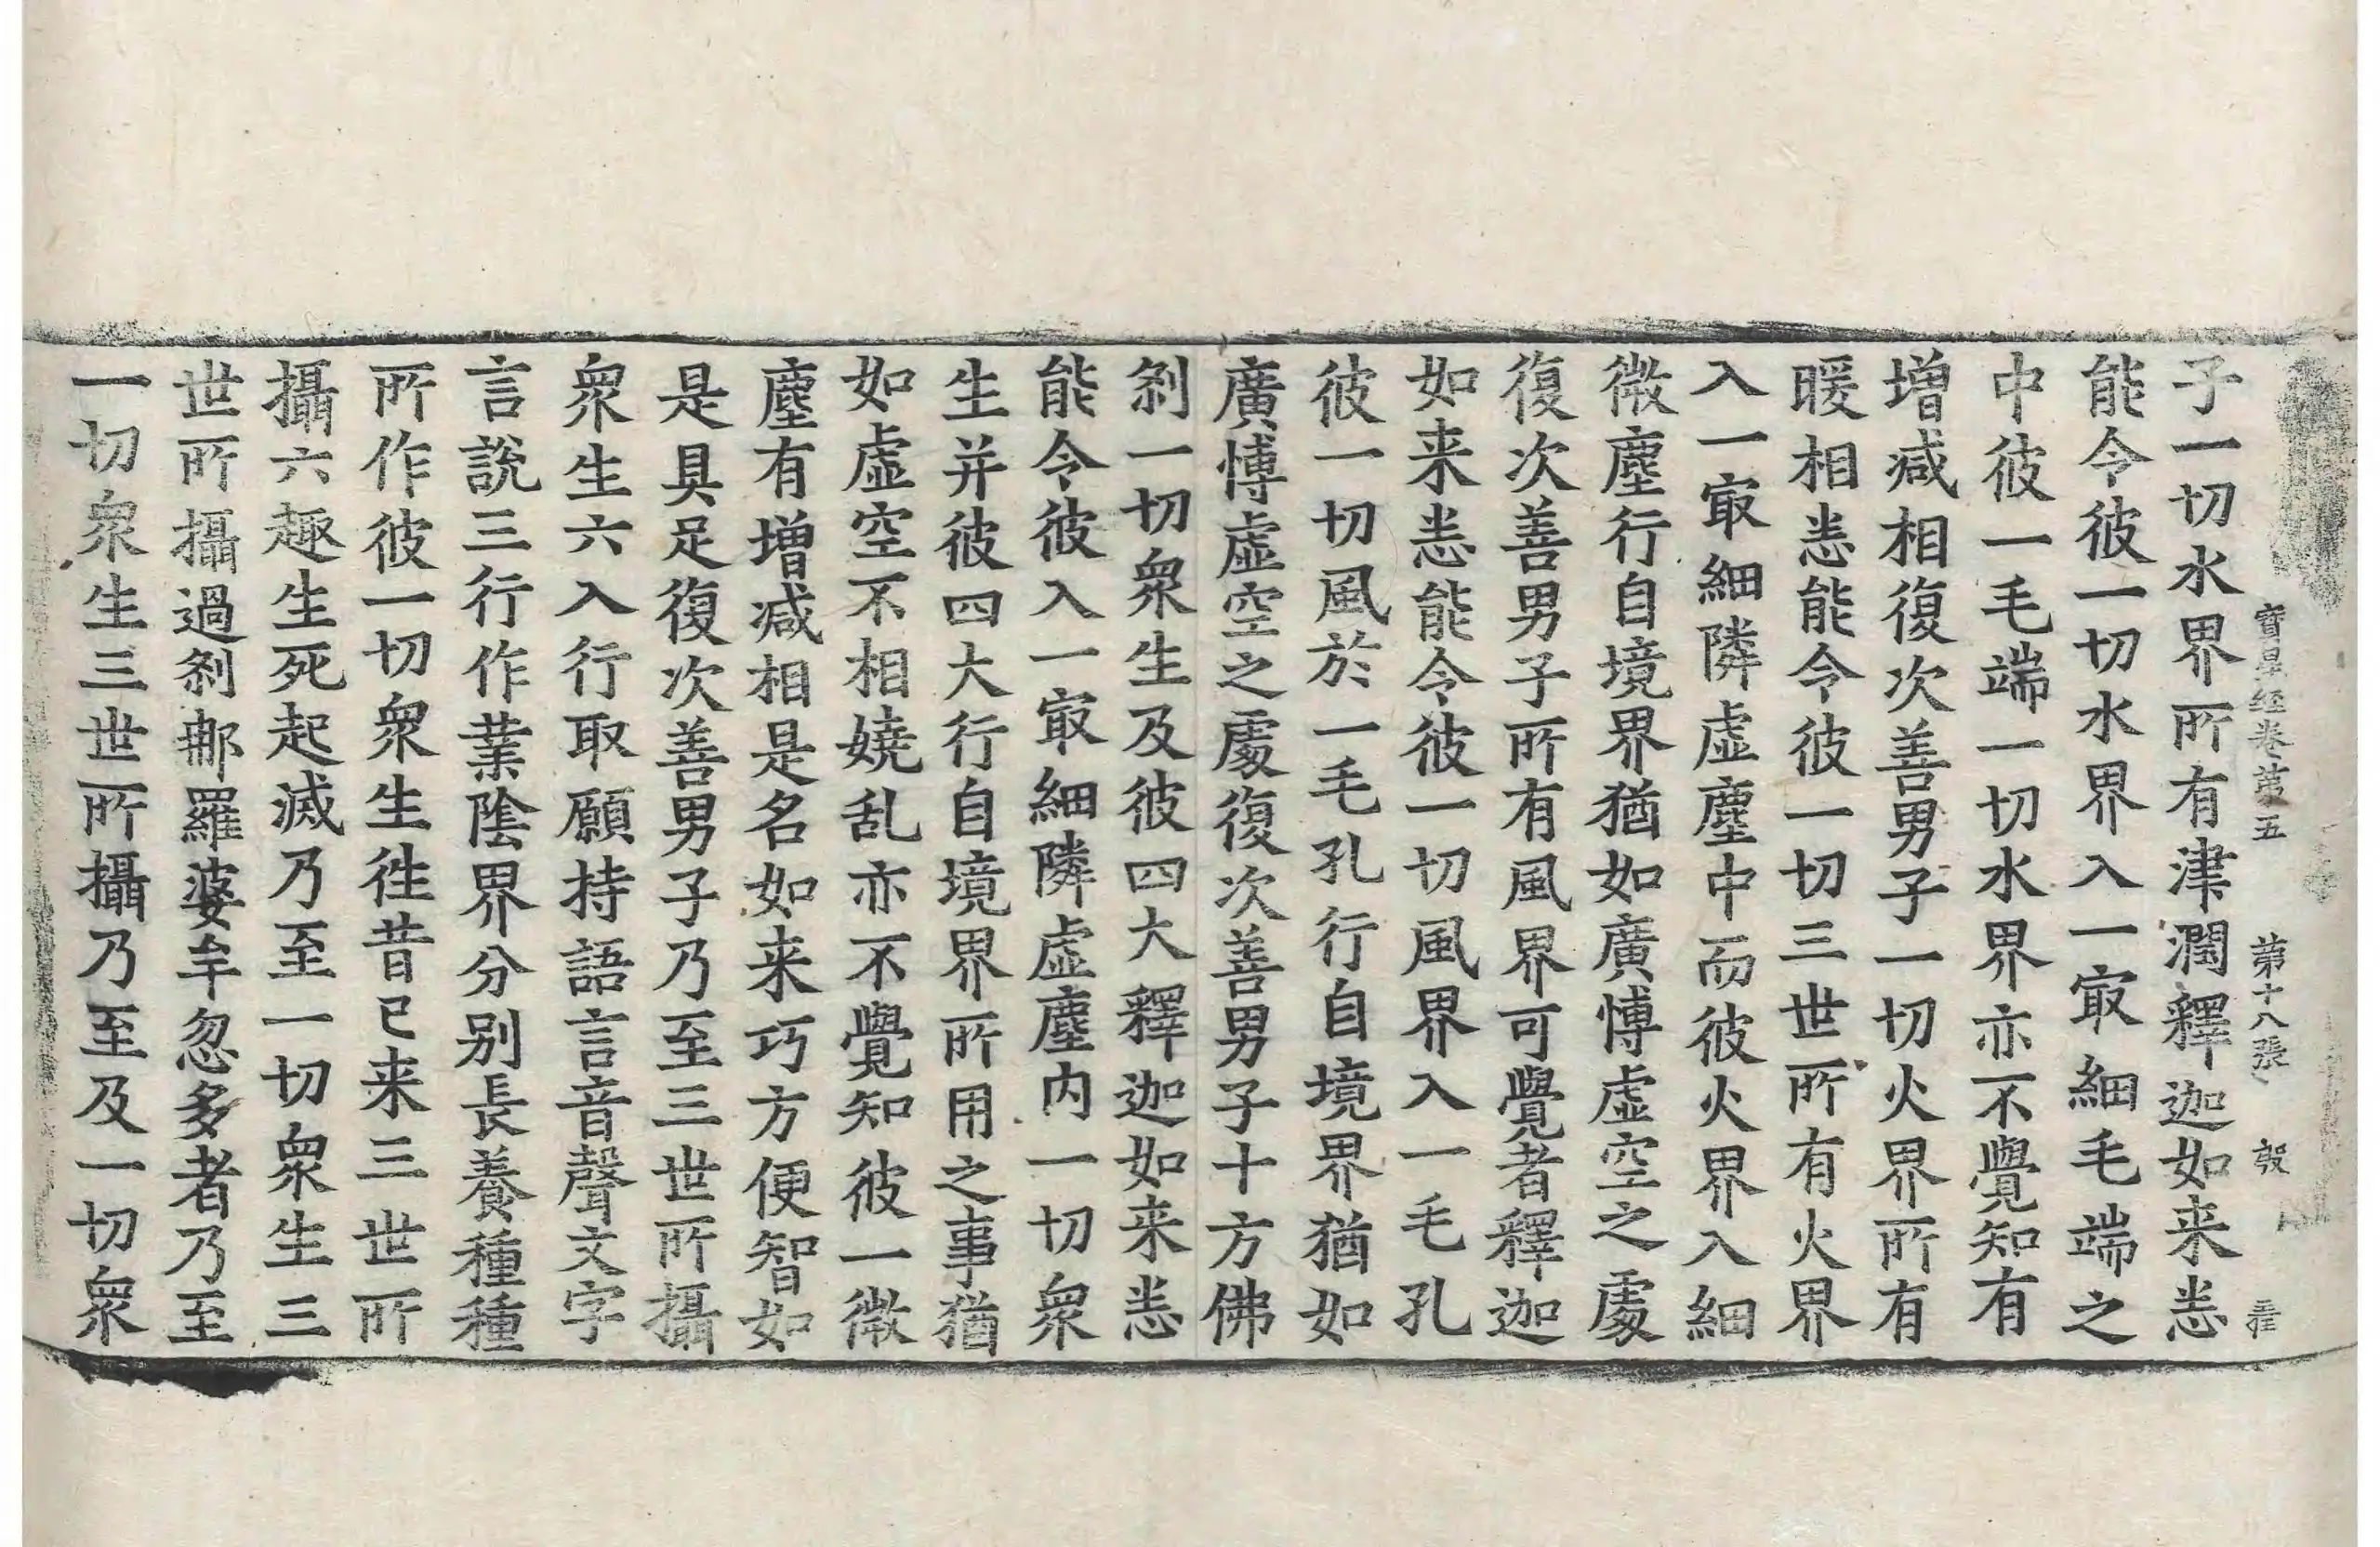 寶星经卷第五 第十八張 
子一切水界所有津潤釋迦如来悉
能令彼一切水界入一㝡細毛端之
中彼一毛端一切水界亦不覺知有
增减相復次善男子一切火界所有
暖相悉能令彼一切三世所有火界
入一㝡細隣虚塵中而彼火界入細
微塵行自境界猶如廣愽虚空之處
復次善男子所有風界可覺者釋迦
如来悉能令彼一切風界入一毛孔
彼一切風於一毛孔行自境界猶如
廣愽虚空之處復次善男子十方佛
剎一切衆生及彼四大釋迦如来悉
能令彼入一㝡細隣虚塵内一切衆
生并彼四大行自境界所用之事猶
如虚空不相嬈乱亦不覺知彼一微
塵有增减相是名如来巧方便智如
是具足復次善男子乃至三世所攝
衆生六入行取願持語言音聲文字
言說三行作業陰界分别長養種種
所作彼一切衆生徃昔已来三世所
攝六趣生死起滅乃至一切衆生三
世所攝過剎那羅婆牟忽多者乃至
一切衆生三世所攝乃至及一切衆